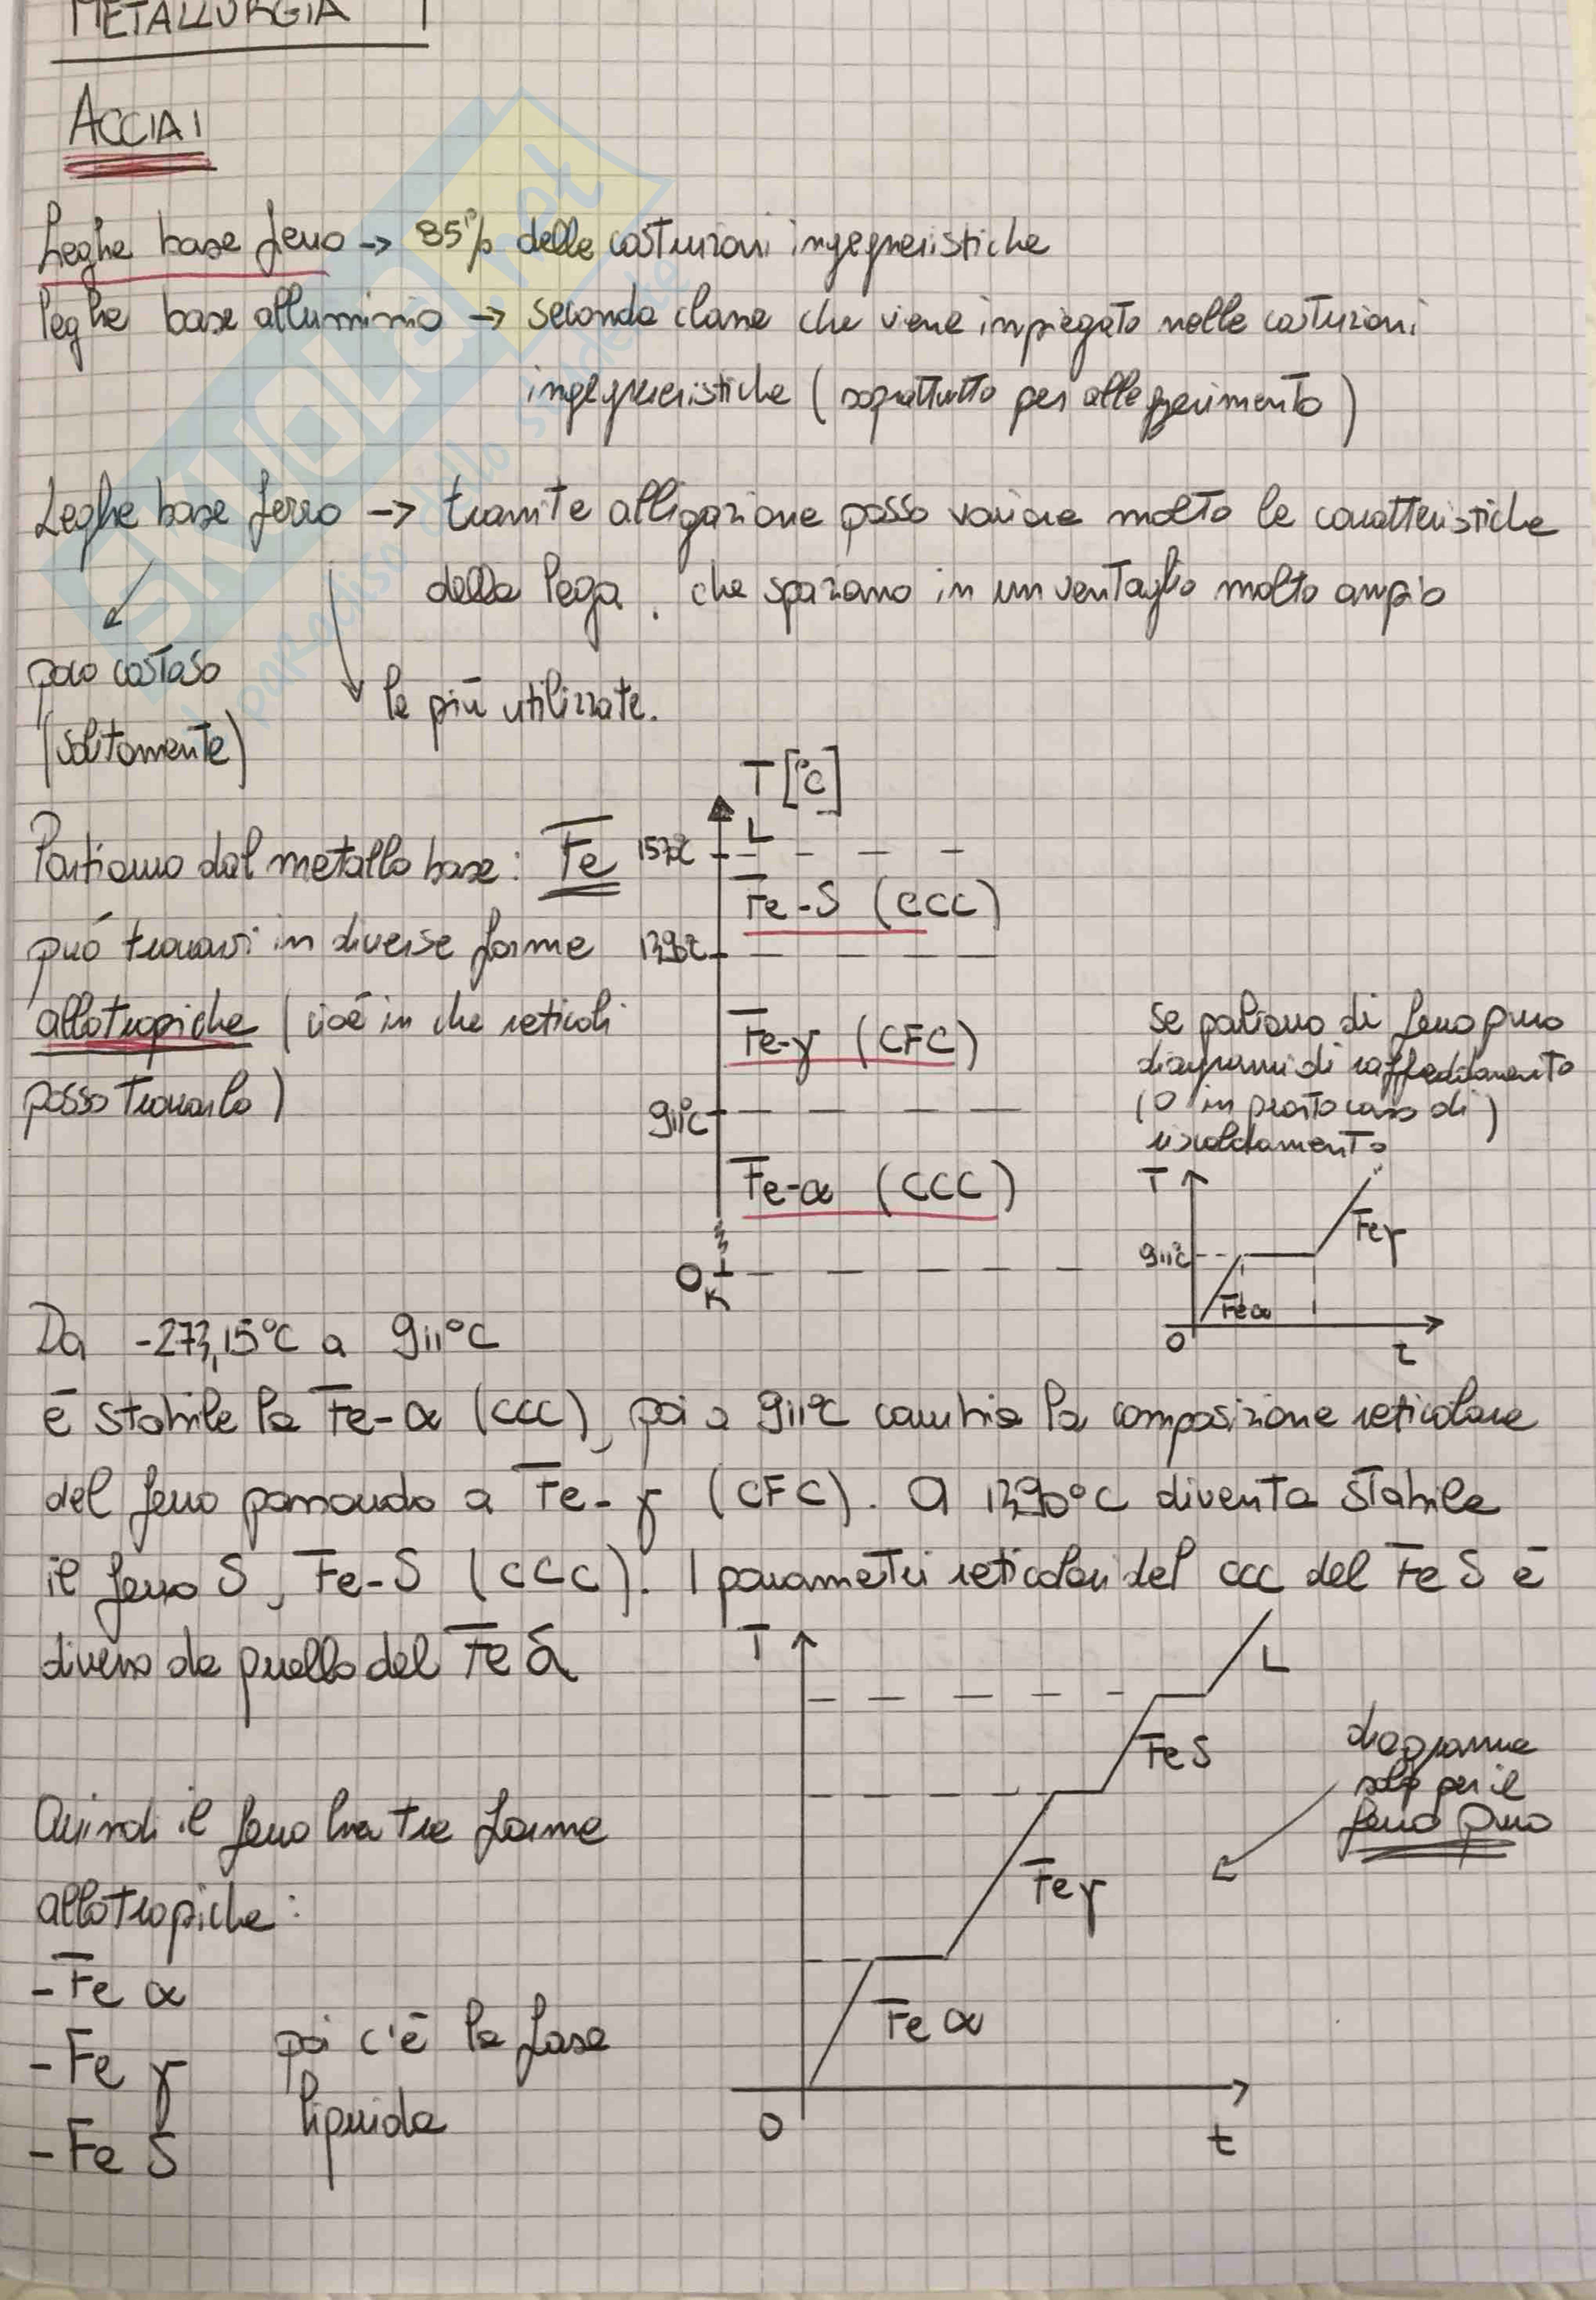 METALLURGIA 1
ACCIAI
Leghe base ferro -> 85% delle costruzioni ingegneristiche
leghe base alluminio -> seconda classe che viene impiegato nelle costruzioni
ingegneristiche (soprattutto per alleggerimento)
Leghe base ferro -> tramite alligazione posso variare molto le caratteristiche
della lega. che spaziano in un ventaglio molto ampio
poco costoso
(solitamente)
le più utilizzate.
T [°C]
Partiamo dal metallo base: Fe
L
Fe-δ (CCC)
può trovarsi in diverse forme
1390°C
allotropiche (cioè in che reticoli
posso trovarlo)
Fe-γ (CFC)
911°C
Fe-α (CCC)
0 K
Se parliamo di ferro puro
diagrammi di raffreddamento
(o in questo caso di)
riscaldamento
T
911°C
Feγ
Feα
0
τ
Da -273,15°C a 911°C
è stabile la Fe-α (CCC), poi a 911°C cambia la composizione reticolare
del ferro passando a Fe-γ (CFC). A 1390°C diventa stabile
il ferro δ, Fe-δ (CCC). I parametri reticolari del CCC del Fe δ è
diverso da quello del Fe α
T
L
Fe δ
Fe γ
Fe α
0
t
diagramma
solo per il
ferro puro
Quindi il ferro ha tre forme
allotropiche:
- Fe α
- Fe γ
- Fe δ
poi c'è la fase
liquida
SKUOLA.net